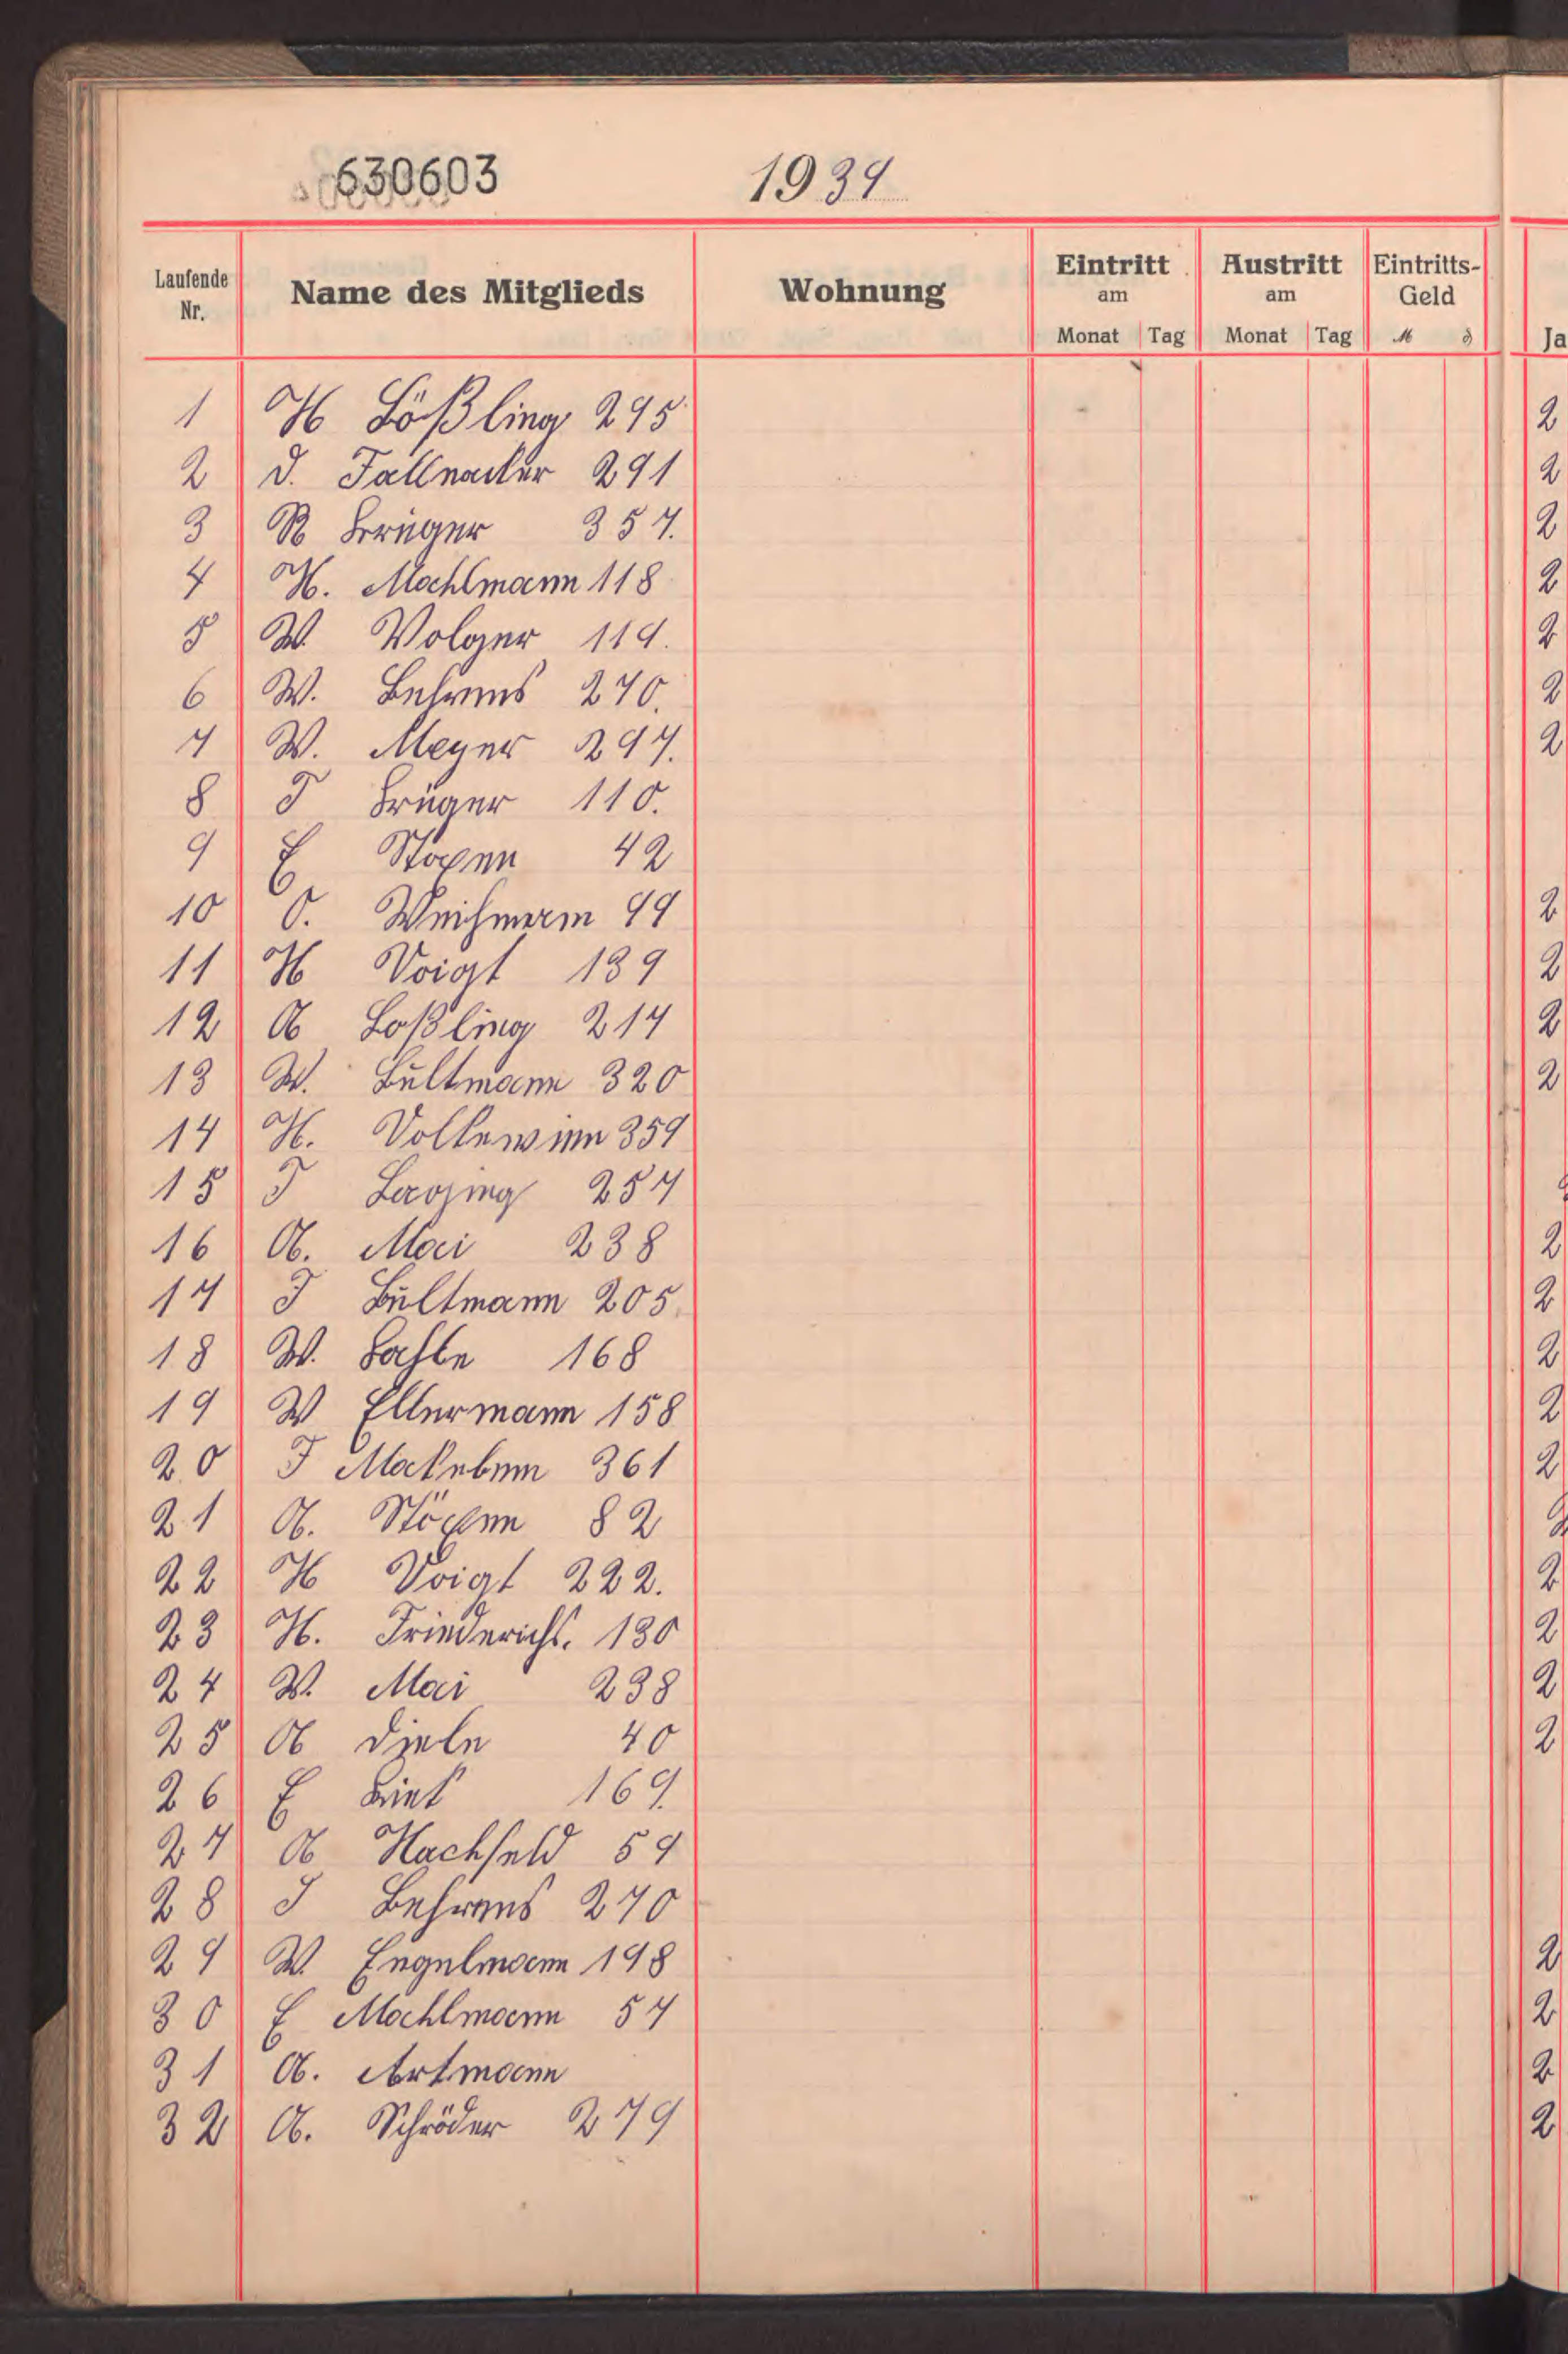 630603
1934
Laufende Nr. Name des Mitglieds Wohnung Eintritt am Monat Tag Austritt am Monat Tag Eintritts-Geld M ₰ Ja
1 H Lößling 295 2
2 D. Fallnacker 291 2
3 R Krüger 357. 2
4 H. Mohlmann 118 2
5 W. Volger 114. 2
6 W. Behrens 270. 2
7 W. Meyer 297. 2
8 F Krüger 110.
9 E Stoxen 42
10 O. Weihmann 99 2
11 H Voigt 139 2
12 A Loßling 217 2
13 W. Bültmann 320 2
14 H. Vollewinn 359
15 F 257
16 A. Mai 238 2
17 F Bültmann 205. 2
18 W. 168 2
19 W Ellermann 158 2
20 F 361 2
21 A. Stöxen 82
22 H Voigt 222. 2
23 H. Friederichs. 130 2
24 W. Mai 238 2
25 A Diele 40 2
26 E 169.
27 A Hachfeld 59
28 F Behrens 270
29 W. Engelmann 198 2
30 E Mohlmann 57 2
31 A. Artmann 2
32 A. Schröder 279 2